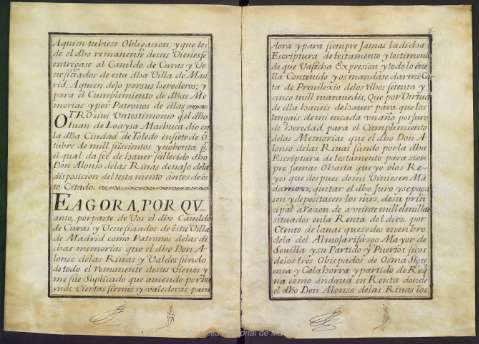 Aquien tubiese Obligacion, y que los
de el dho remanente de sus Vienes se
entregase al Cauildo de Curas y Ve
neficiados de esta dha Villa de Ma
drid, Aquien dejo por sus herederos, y
para el Cumplimiento de dhas Me
morias y por Patronos de ellas
OTRO si un testimonio que el dho
Juan de Loaysa Machuca dio en
la dha Ciudad de Toledo en siete de
tubre de mill seiscientos y nobenta
el qual da feé de hauer fallecido dho
Don Alonso de las Rinas deuajo de la
disposicion del testamento antes de es
to Citado.
E AGORA, POR QV
anto, por parte de Vos el dho Cauildo
de Curas y Veneficiados de esta Villa
de Madrid como Patronos de las di
chas memorias que el dho Don A
lonso de las Rinas y Valdes fundo
de todo el remanente de sus Vienes y
me fue Suplicado que auiendo por bu
enas Ciertas firmes y valederas para
Aora y para siempre Jamas la dicha
Escriptura de testamento y testimonio
de que Va fecha Expresion y todo lo en e
lla Contenido y os mandase dar mi Car
ta de Preuilexio de los Vltos setenta y
cinco mill marauedis, Que por Virtud
de ella haueis de hauer para que los
tengais de mi encada vn año por Juro
de heredad para el Cumplimiento
de las Memorias que el dho Don
Alonso de las Rinas fundo por la dha
Escriptura de testamento para siem
pre jamas Obasta que yo o los Re
yes que despues de mi Vinieren Man
daremos quitar el dho Juro y se paguen
y depositaren los mrs. de su prin
cipal a razon de a veinte mill el millar
situados en la Renta del diez por
Ciento de lanas que es des miembro
de la del Almojarifazgo Mayor de
Seuilla y su Partido y Puertos secos
de los tres Obispados de Osma Siguen
za y Calahorra y partido de Req
na como andaua en Renta donde
el dho Don Alonso de las Rinas los